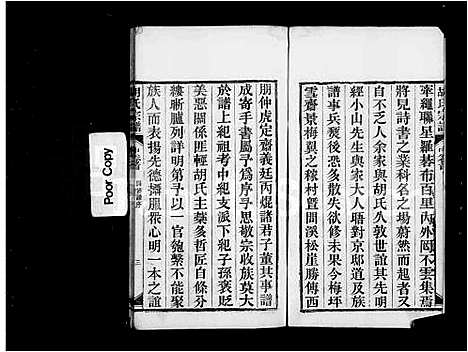 牽繩聯星羅碁布百里內外罔不雲集焉
將見詩書之業科名之場蔚然而起代
自不乏人余家與胡氏久敦世誼其族
經小山先生與家大人晤對京邸道及族
譜事兵燹後多散失欲修未果今梅坪
雪齋景梅翼之稼村暨同溪松崖勝傳西
朋仲虎定齋義廷丙焜諸君子董其事譜
成寄手書屬予序予思敬宗收族莫大
於譜上紀祖考中紀支派下紀子孫褒貶
美惡關係匪輕胡氏主棻多哲匠自有
縷晰臚列詳明第予以一官匏繫不能聚
族人而表揚先德攝服衆心明一本之誼
胡氏宗譜
三
Poor Copy